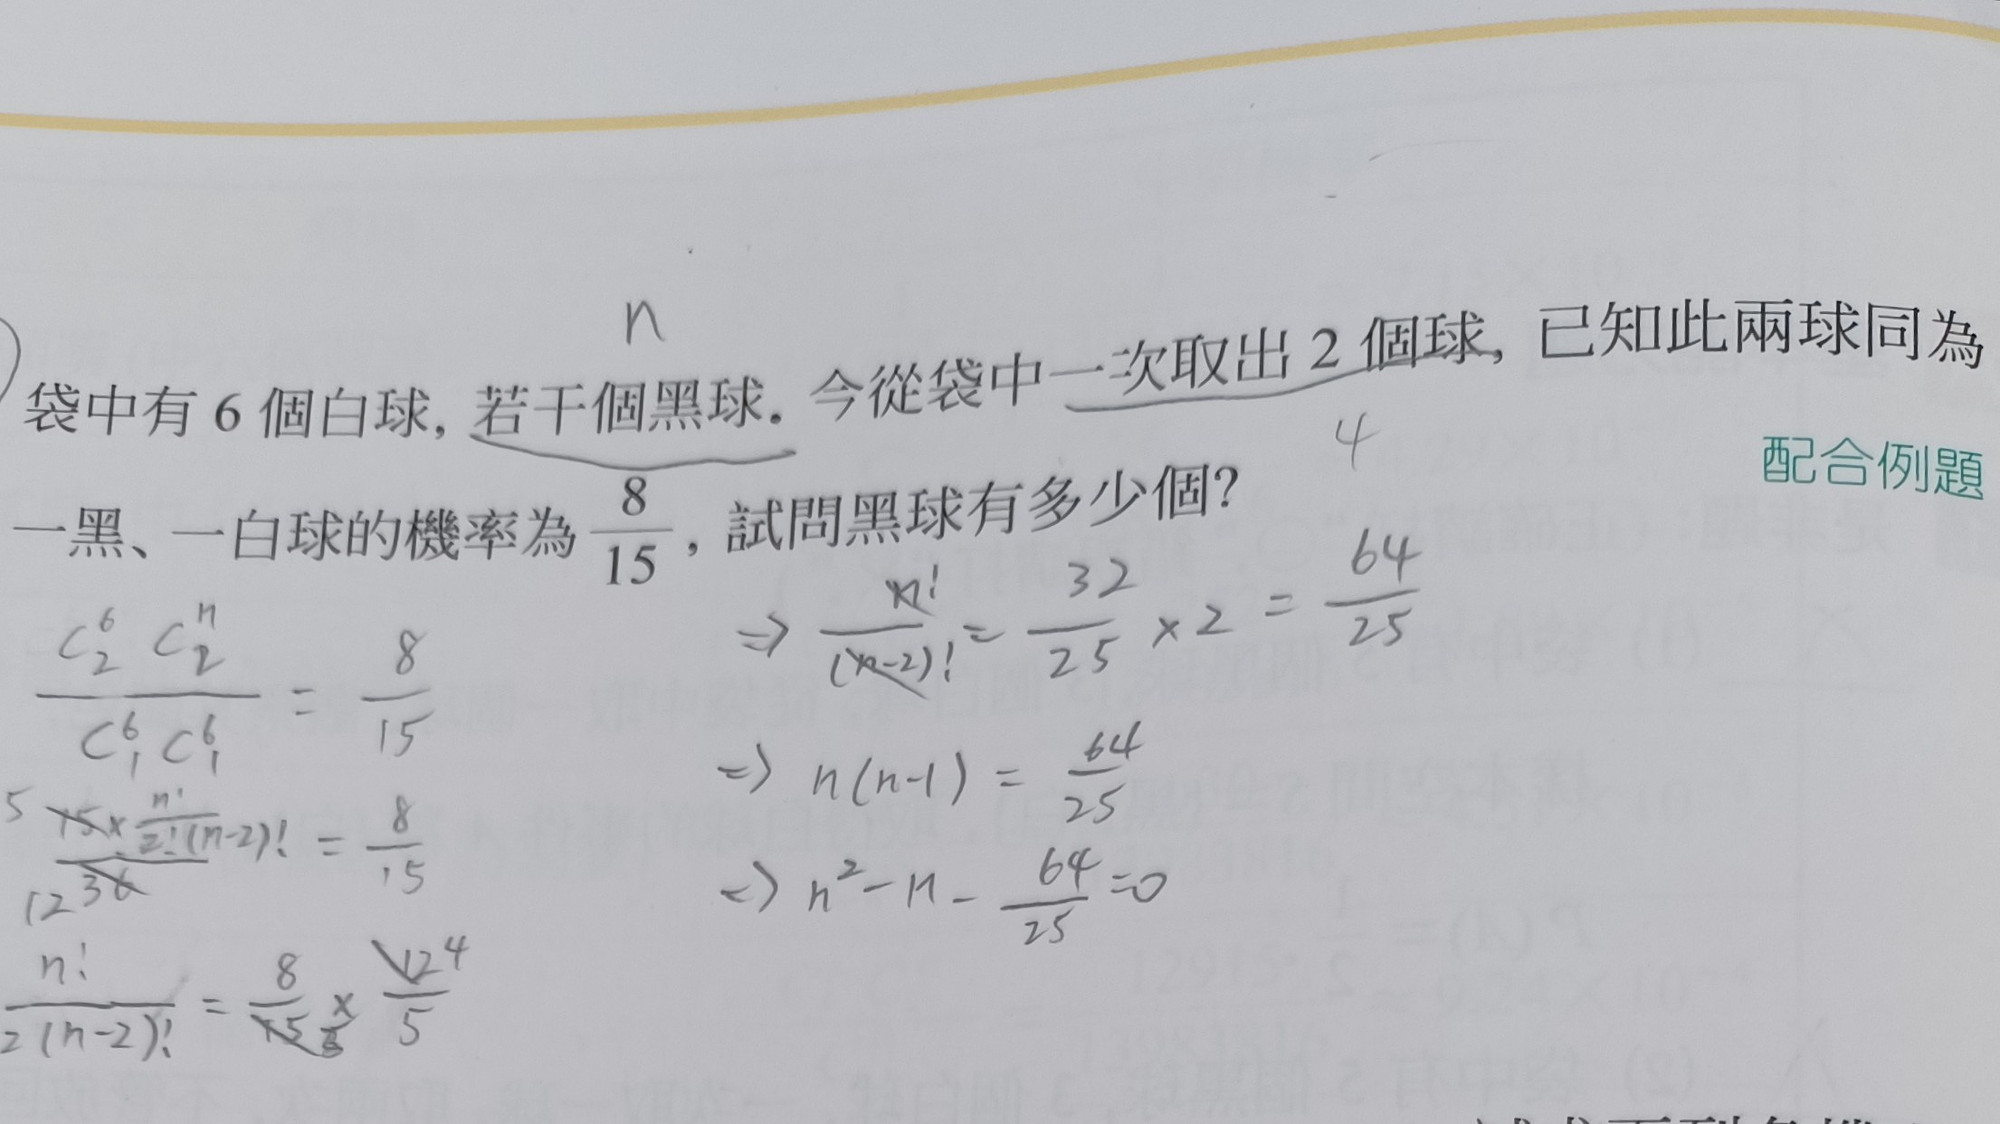 n
袋中有 6 個白球, 若干個黑球. 今從袋中一次取出 2 個球, 已知此兩球同為
一黑、一白球的機率為 8/15, 試問黑球有多少個?
4
配合例題
C⁶₂ Cⁿ₂ / C⁶₁ C⁶₁ = 8/15
5 15 × n!/2!(n-2)! / 36 12 = 8/15
n! / 2(n-2)! = 8/15 × 12 4/5
⇒ n!/(n-2)! = 32/25 × 2 = 64/25
⇒ n(n-1) = 64/25
⇒ n² - n - 64/25 = 0